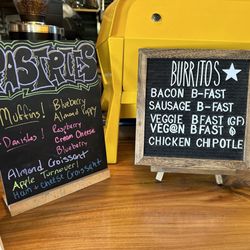 PASTRIES
Muffins! Blueberry
Almond Poppy
Danishes! Raspberry
Cream Cheese
Blueberry
Almond Croissant
Apple Turnover!
Ham + Cheese Croissant
BURRITOS
BACON B-FAST
SAUSAGE B-FAST
VEGGIE BFAST (GF)
VEG@N BFAST
CHICKEN CHIPOTLE